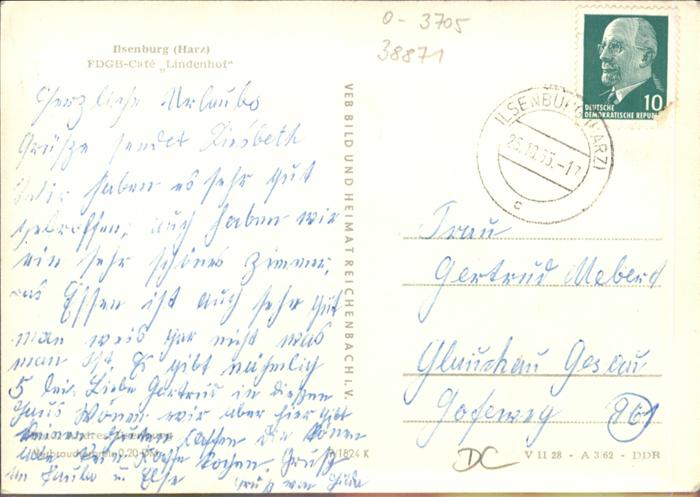 0 - 3705
38871
Ilsenburg (Harz)
FDGB-Café „Lindenhof"
Herzliche Urlaubs
Grüsze sendet Liesbeth
Wir haben es sehr gut
getroffen, auch haben wir
ein sehr schönes Zimmer,
das Essen ist auch sehr gut
man weis gar nicht was
man ist. Es gibt nähmlich
5 Liebe Gertrud in diesen
Haus wönen wir aber hier gibt
die
kochen. Gruß
an u Else
Gruß von Hilde
VEB BILD UND HEIMAT REICHENBACH I. V.
DEUTSCHE
DEMOKRATISCHE REPUBL
10
ILSENBURG (HARZ)
25.10.65.-17
c
Frau
Gertrud Mebert
Glauchau Gesau
Hofeweg 861
DC
V 11 28 - A 3/62 - DDR
1824 K